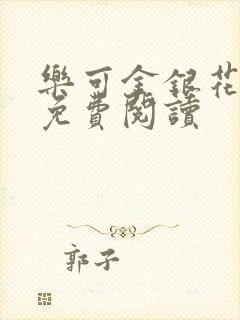 樂可金銀花
免費閱讀
郭子